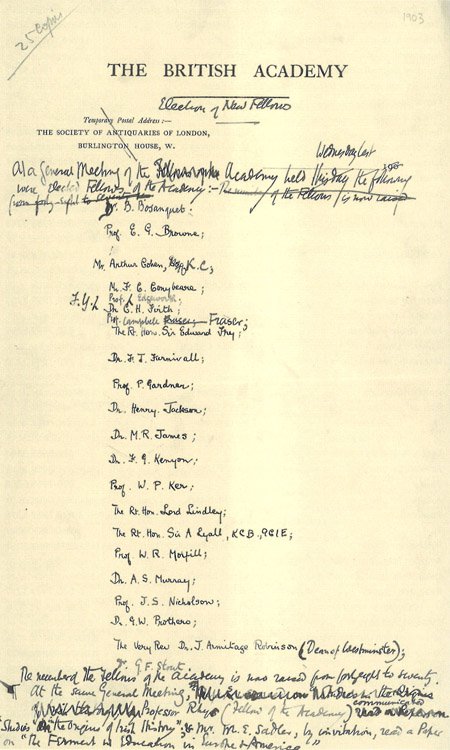 25 Copies
1903
THE BRITISH ACADEMY
Election of New Fellows
Temporary Postal Address :—
THE SOCIETY OF ANTIQUARIES OF LONDON,
BURLINGTON HOUSE, W.
Wednesday last
At a General Meeting of the Academy held this day the following
were elected Fellows of the Academy :— The number of the Fellows is now raised
from forty-eight to seventy
Dr. B. Bosanquet;
Prof. E. G. Browne;
Mr. Arthur Cohen, K.C;
Mr. F. C. Conybeare;
F.Y.
Prof. Edgeworth;
Dr. C. H. Firth;
Prof. Campbell Fraser;
The Rt. Hon. Sir Edward Fry;
Dr. F. J. Furnivall;
Prof. P. Gardner;
Dr. Henry Jackson;
Dr. M. R. James;
Dr. F. G. Kenyon;
Prof. W. P. Ker;
The Rt. Hon. Lord Lindley;
The Rt. Hon. Sir A Lyall, KCB, GCIE;
Prof. W. R. Morfill;
Dr. A. S. Murray;
Prof. J. S. Nicholson;
Dr. G. W. Prothero;
The Very Rev Dr. J. Armitage Robinson (Dean of Westminster);
Dr. G F. Stout.
The number of the Fellows of the Academy is now raised from forty-eight to seventy.
At the same General Meeting,
Professor Rhys (Fellow of the Academy) communicated
Studies in the Origins of Irish History; & Mr. M. E. Sadler, by invitation, read a Paper
on The Ferment in Education in Europe & America